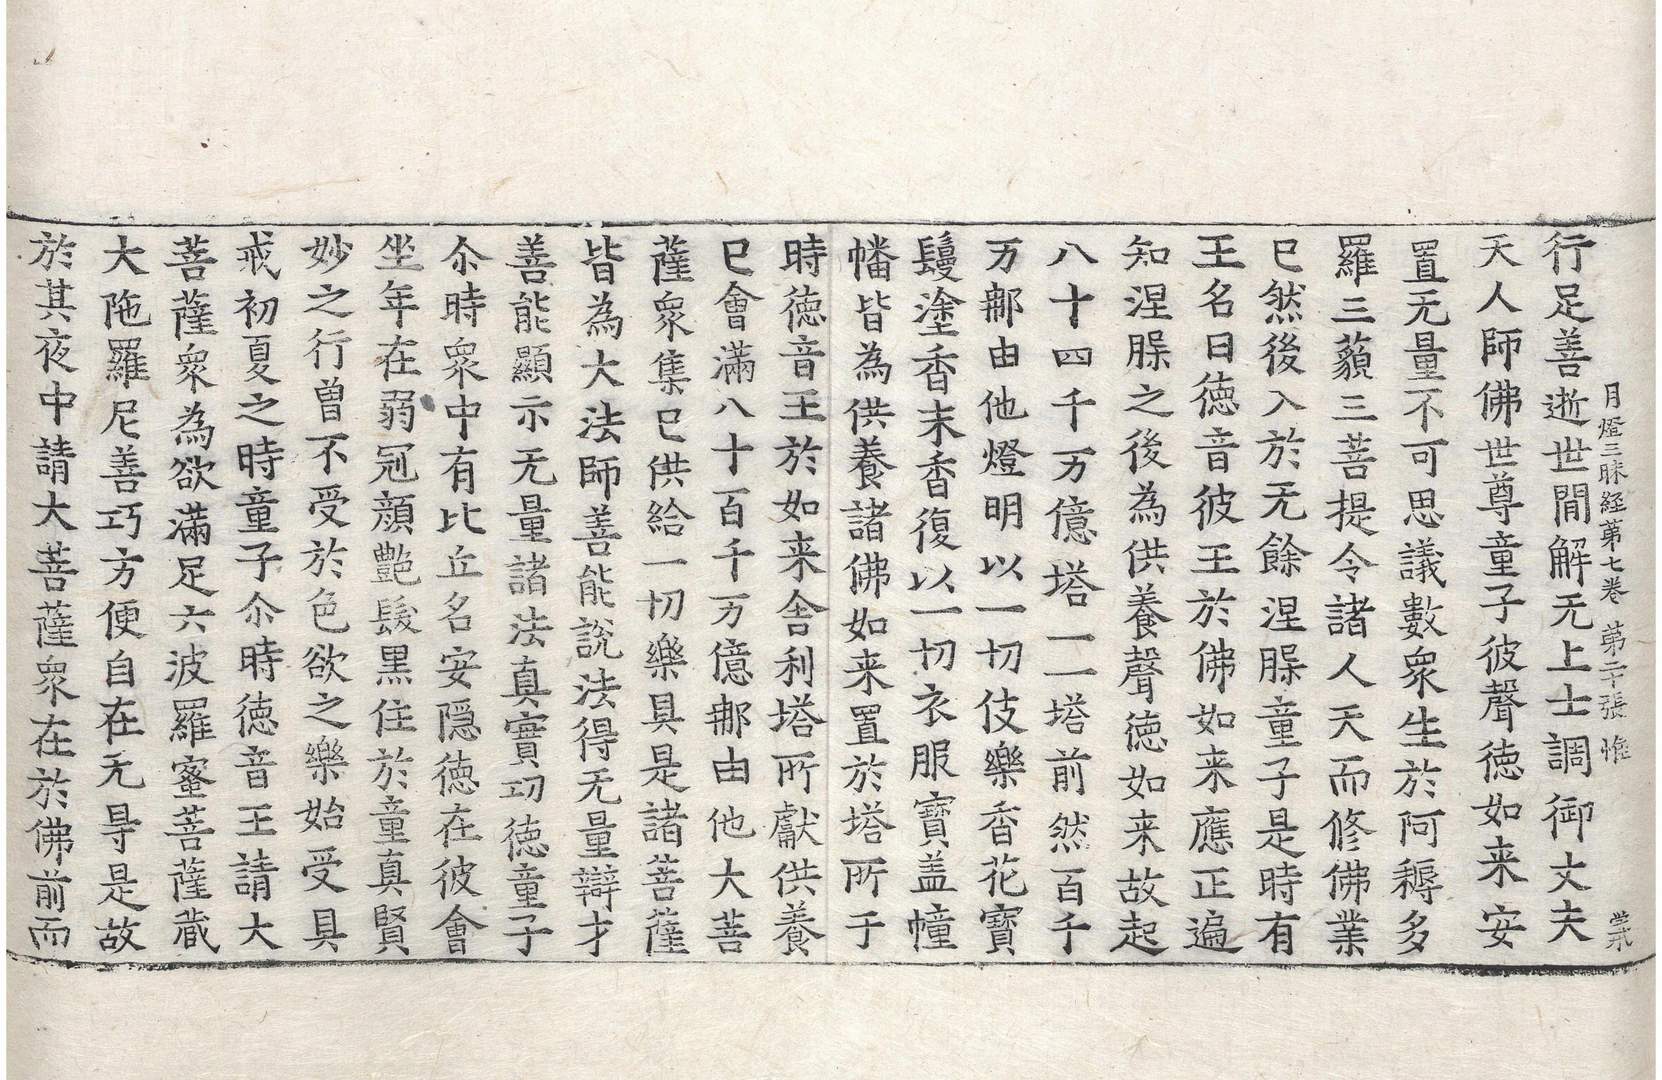 月燈三昧経苐七卷 苐二十張 惟
行足善逝世間解无上士調御丈夫
天人師佛世尊童子彼聲徳如来安
置无量不可思議數衆生於阿耨多
羅三藐三菩提令諸人天而修佛業
已然後入於无餘涅槃童子是時有
王名曰徳音彼王於佛如来應正遍
知涅槃之後為供養聲徳如来故起
八十四千万億塔一一塔前然百千
万那由他燈明以一切伎樂香花寶
鬘塗香末香復以一切衣服寶盖幢
幡皆為供養諸佛如来置於塔所于
時徳音王於如来舎利塔所獻供養
已會滿八十百千万億那由他大菩
薩衆集已供給一切樂具是諸菩薩
皆為大法師善能說法得无量辯才
善能顯示无量諸法真實㓛徳童子
尒時衆中有比丘名安隠徳在彼會
坐年在弱冠顔艶髮黒住於童真賢
妙之行曾不受於色欲之樂始受具
戒初夏之時童子尒時徳音王請大
菩薩衆為欲滿足六波羅蜜菩薩蔵
大陁羅尼善巧方便自在无㝵是故
於其夜中請大菩薩衆在於佛前而